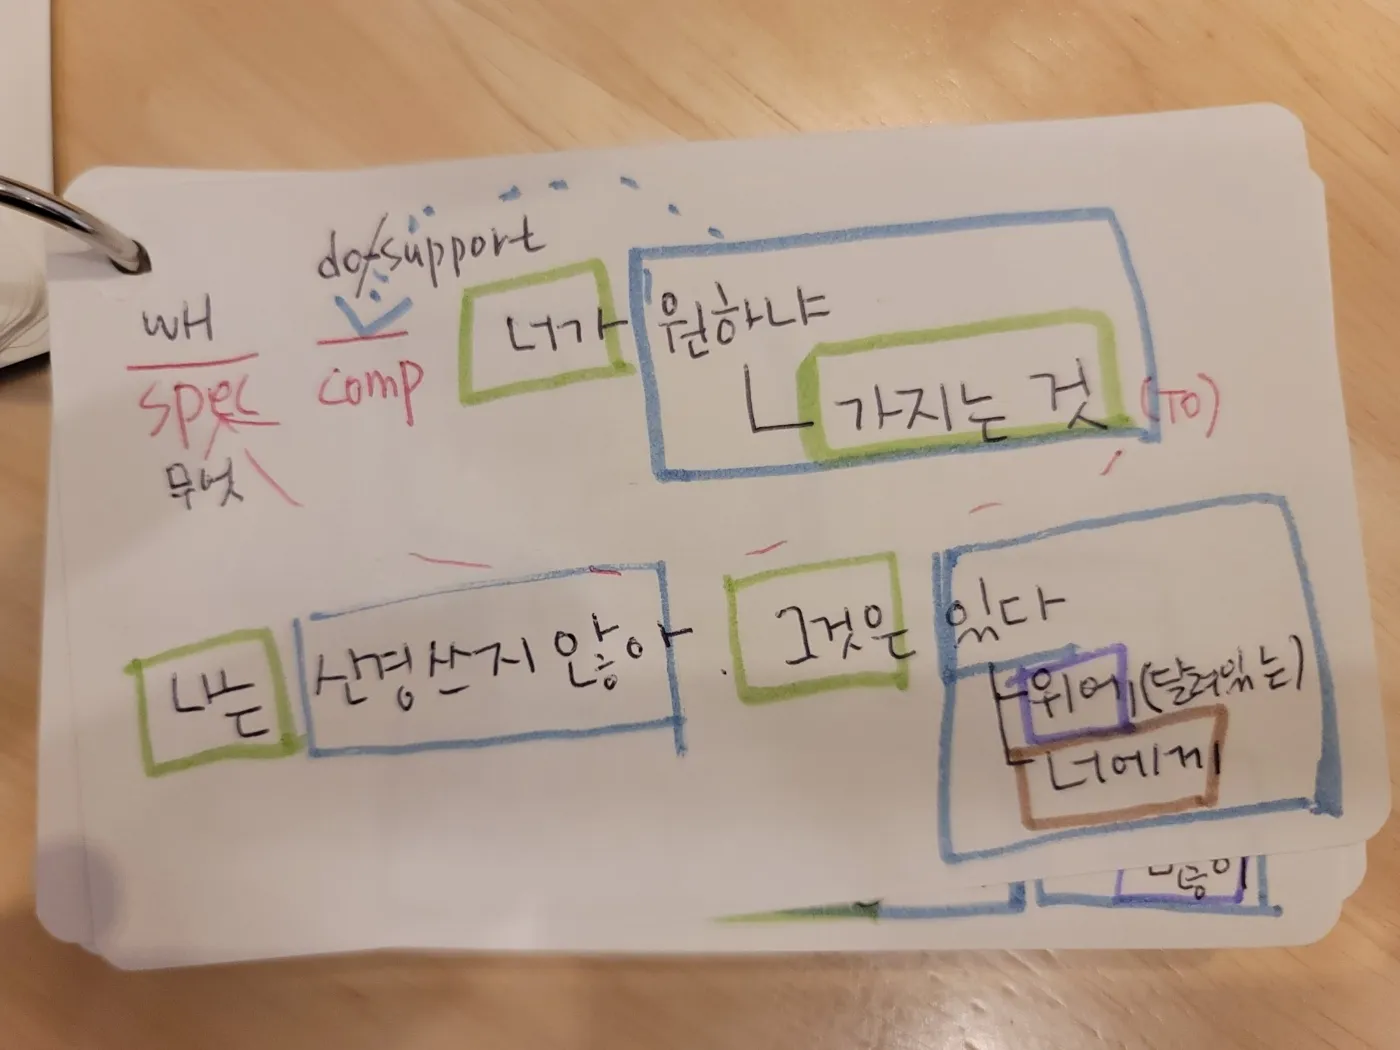 do/support
WH
너가 원하냐
spec comp
가지는 것 (TO)
무엇
나는 신경쓰지 않아. 그것은 있다
위에 (달려있는)
너에게